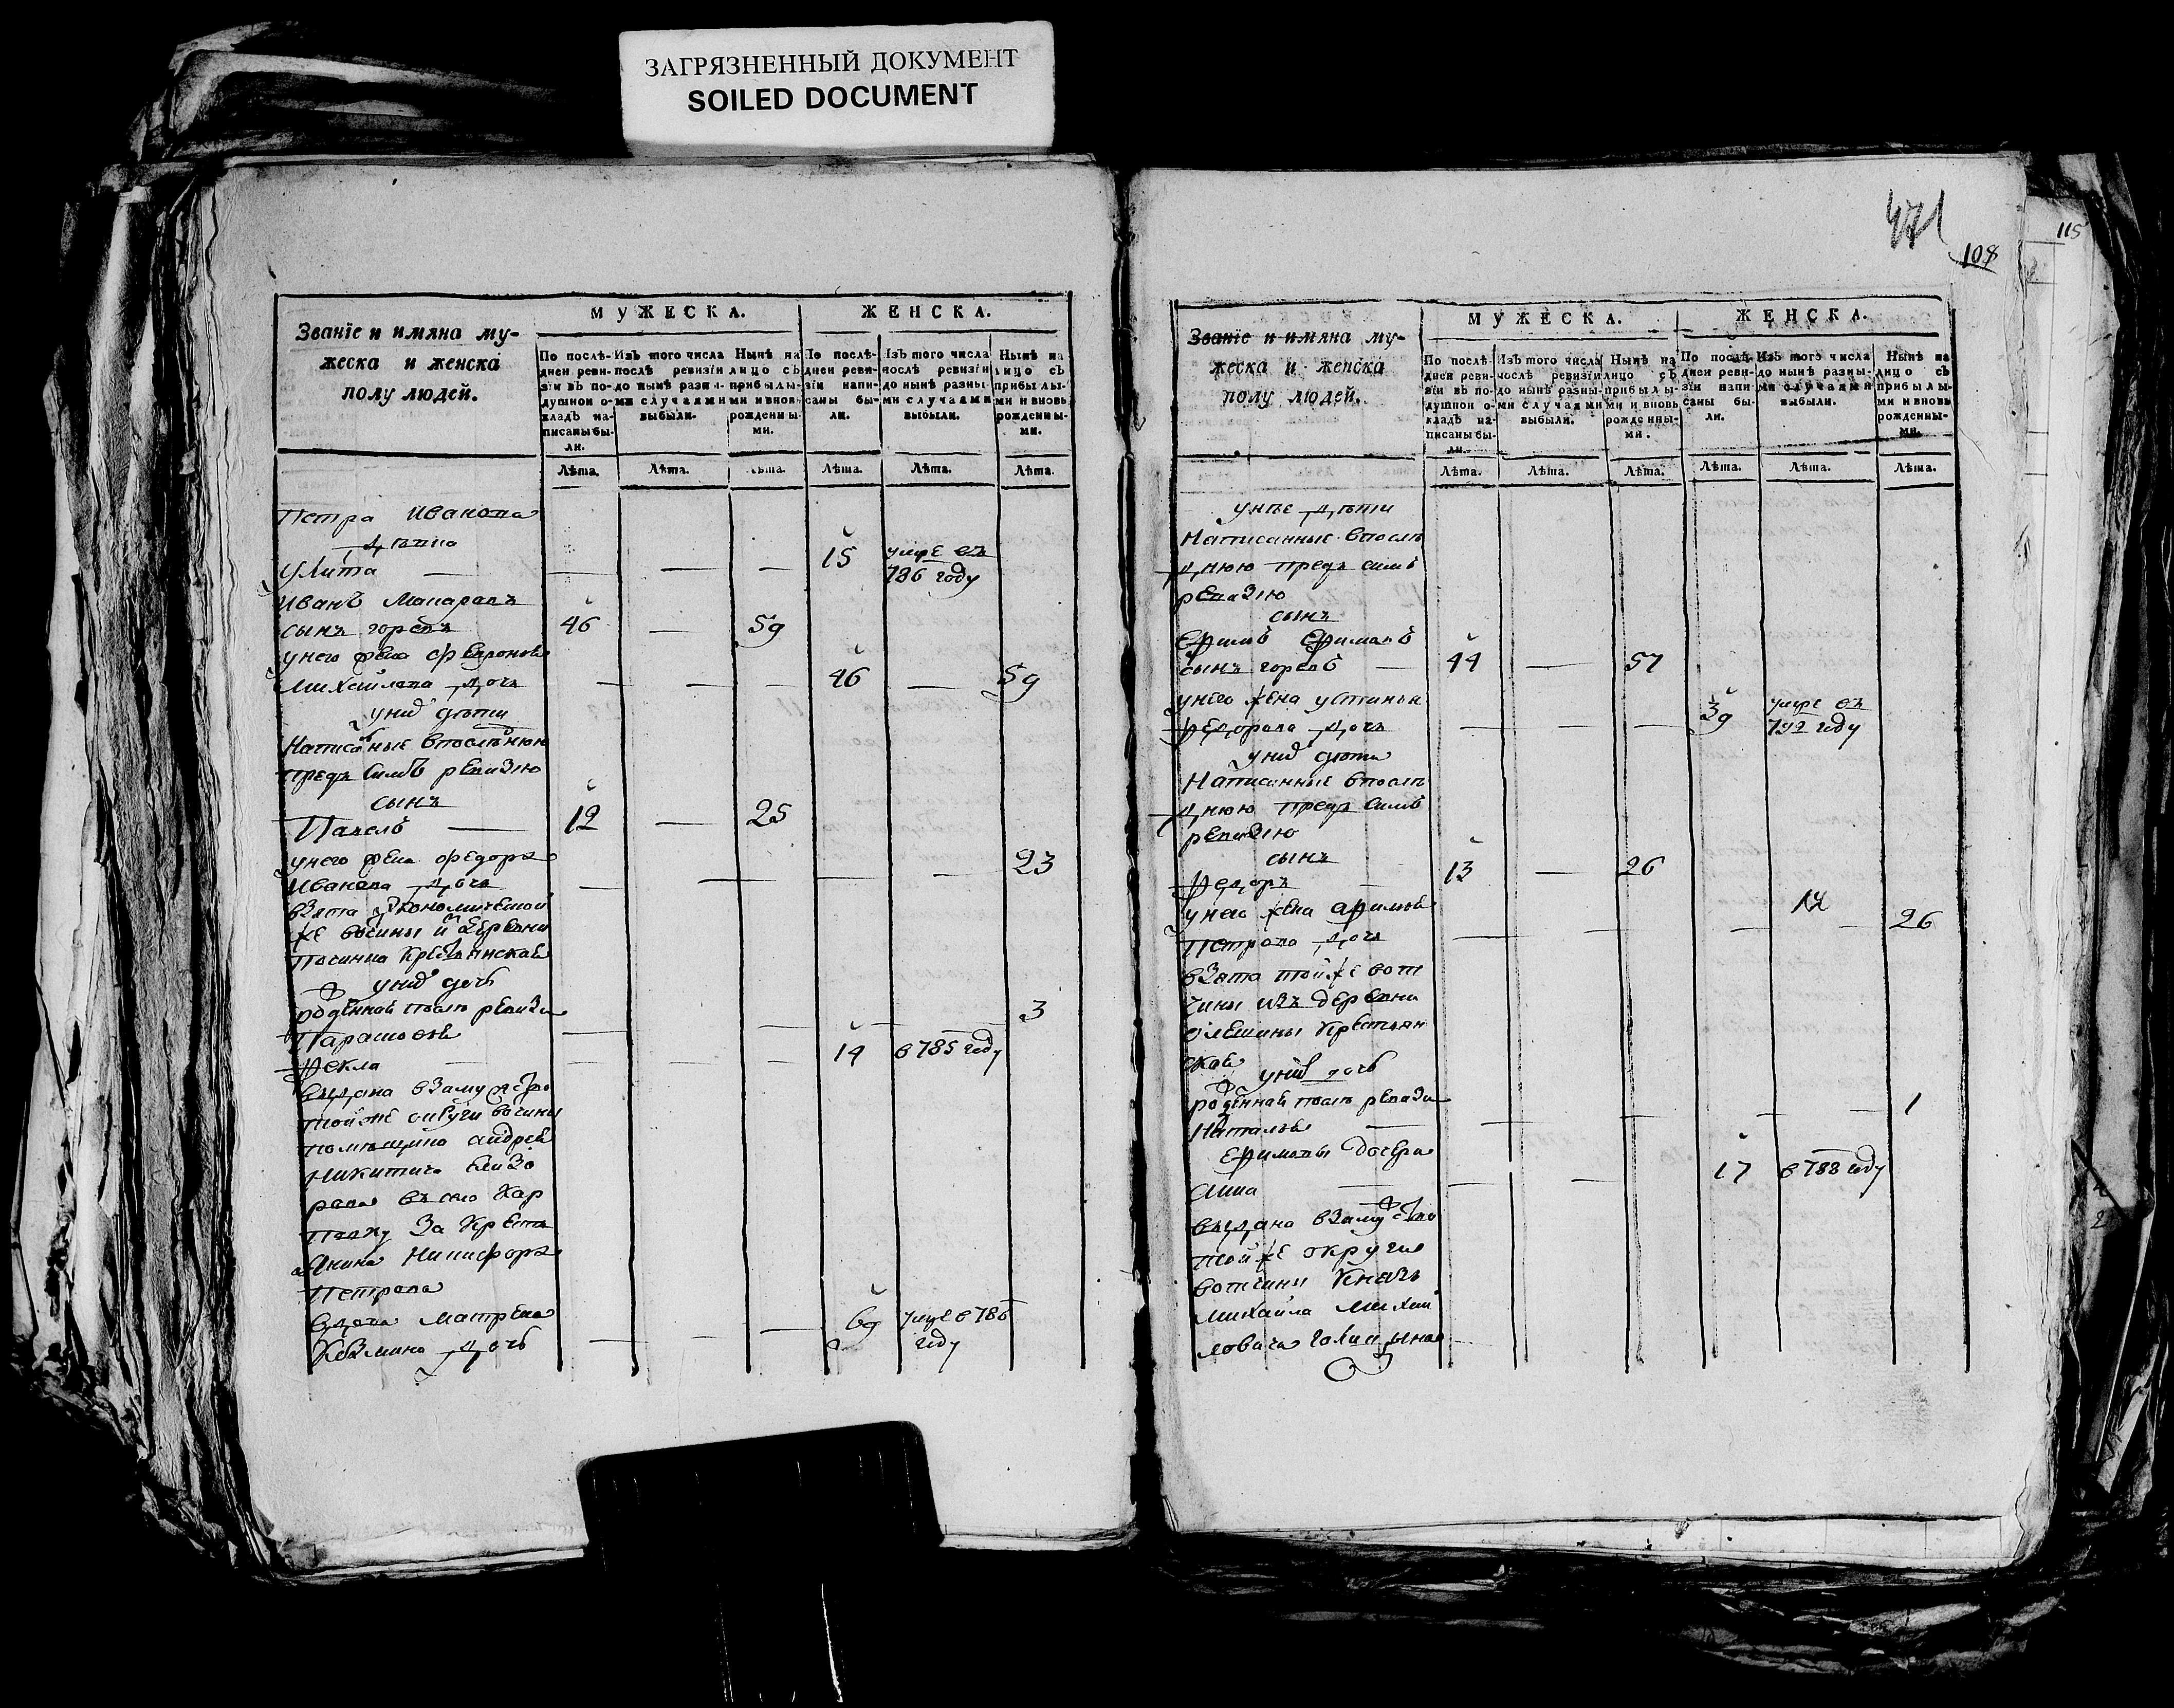 ЗАГРЯЗНЕННЫЙ ДОКУМЕНТ
SOILED DOCUMENT
Званїе и имяна му-
жеска и женска
полу людей.
МУЖЕСКА.
ЖЕНСКА.
По послѣ-
дней реви-
зїи въ по-
душной о-
кладъ на-
писаны бы-
ли.
Изъ того числа
послѣ ревизїи
до нынѣ разны-
ми случаями
выбыли.
Нынѣ на
лицо съ
прибылы-
ми и вновь
рожденны-
ми.
По послѣ-
дней реви-
зїи напи-
саны бы-
ли.
Изъ того числа
послѣ ревизїи
до нынѣ разны-
ми случаями
выбыли.
Нынѣ на
лицо съ
прибылы-
ми и вновь
рожденны-
ми.
Лѣта. Лѣта. Лѣта. Лѣта. Лѣта. Лѣта.
Петра Иванова
дѣти
Улита — 15 умре въ
786 году
Иванъ Макаровъ
сынъ 46 — 59
у него жена
Михайлова дочь 46 — 59
у них дети
Написаные в последнюю
пред сим ревизию
сынъ
Павелъ — 12 — 25
у него жена Федора
Иванова дочь — 23
взята экономической
же вотчины и деревни
Починка крестьянская
у них дочь
рожденная после ревизи
Парасковья 3
Фекла — 14 в 785 году
выдана в замужство
той же округи вотчины
помещика Андрея
Никитича
рова в село Кар
повку за кресть
янина Никифора
Петрова
вдова Матрена
Козмина дочь 69 умре в 786
году
471
108
115
Званїе и имяна му-
жеска и женска
полу людей.
МУЖЕСКА.
ЖЕНСКА.
По послѣ-
дней реви-
зїи въ по-
душной о-
кладъ на-
писаны бы-
ли.
Изъ того числа
послѣ ревизїи
до нынѣ разны-
ми случаями
выбыли.
Нынѣ на
лицо съ
прибылы-
ми и вновь
рожденны-
ми.
По послѣ-
дней реви-
зїи напи-
саны бы-
ли.
Изъ того числа
до нынѣ разны-
ми случаями
выбыли.
Нынѣ на
лицо съ
прибылы-
ми и вновь
рожденны-
ми.
Лѣта. Лѣта. Лѣта. Лѣта. Лѣта. Лѣта.
дѣти
Написанные в послѣ
днюю пред сим
ревизию
сынъ
Ефимъ Ефимовъ
сынъ 44 — 57
у него жена Устинья
Федорова дочь 39 умре въ
792 году
у них дети
Написанные в послѣ
днюю пред сим
ревизию
сынъ
Федоръ — 13 — 26
у него жена Афимья
Петрова дочь 26
взята той же вот
чины из деревни
крестьян
ская
у них дочь
рожденная после ревизи
Наталья — 1
Ефимовы
Анна — 17 в 788 году
выдана в замужство
той же округи
вотчины князя
Михайла Михай
ловича Голицына